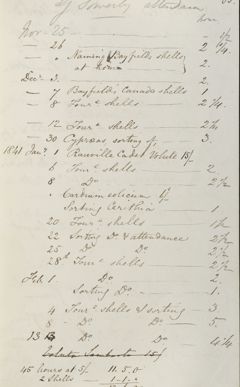 of Sowerby attendance
hrs.
Nov. 25 — — 1/2
— 26 — 2 1/4
— " Naming (Bayfields shells at home) 2.
Decr 3. — 2
— 7 Bayfields Canada shells 1
— 8 Fourc shells — 2 1/4.
— 12 Fourc shells — 2 1/2
— 30 Cypraea sorting of — 3.
1841 Jany 1 Ranville Cadet Volute 15/-
6 Fourc shells — 2
8 Do — 2 1/2
" Cardium
Sorting Cerithia — 1
20 Fourc shells — 1 1/2
22 Sorting Do & attendance 2 1/2
25 Do Do 2 1/2
28th Fourc shells — 2 1/2
Feb 1 — Do — 2.
Sorting Do — 1.
4 Fourc shells & sorting — 3.
8 — Do — Do — 5.
13 — Do — Do — 4 1/4
15/
45 hours at 5/ 11.5.0
2 Shells